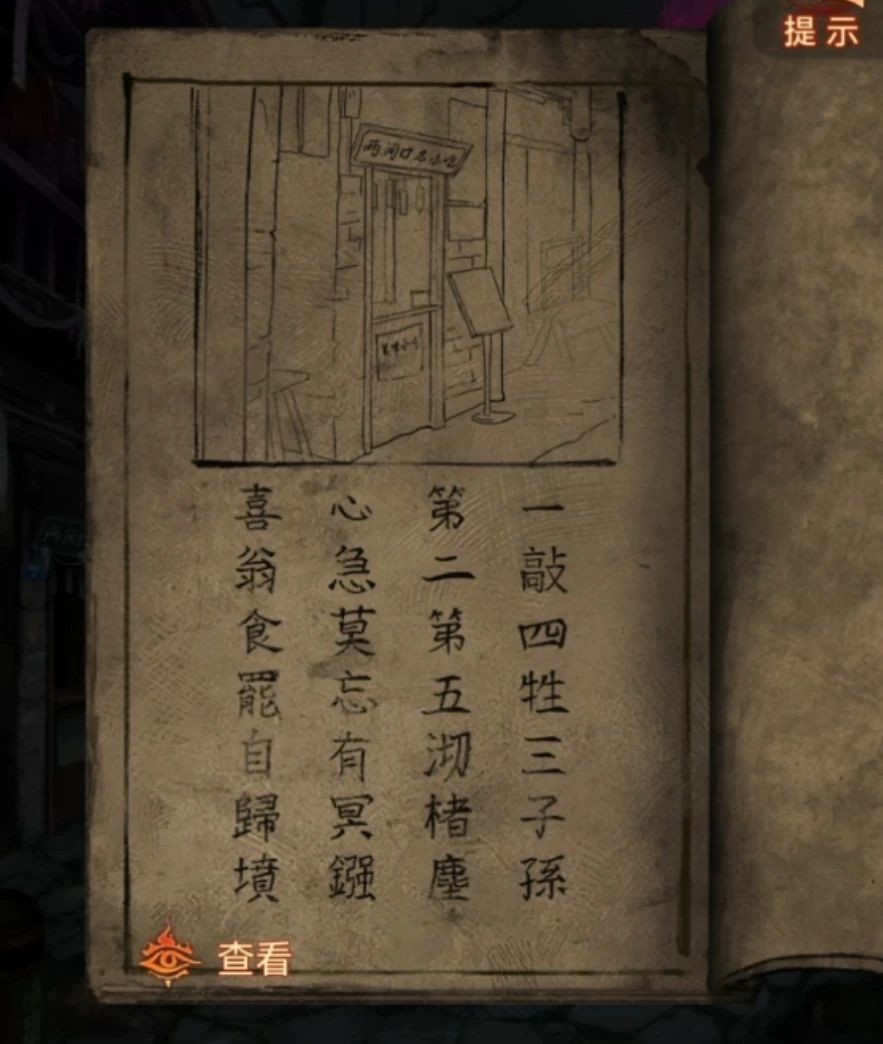 提示
两间口名小吃
一敲四牲三子孫
第二第五沏楮塵
心急莫忘有冥鏹
喜翁食罷自歸墳
查看